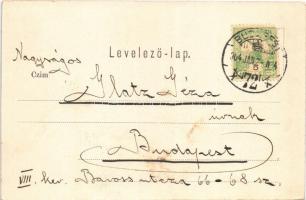 Levelező-lap.
Nagyságos
Czim
Glatz Géza
úrnak
Budapest
VIII. ker. Baross utcza 66-68 sz.